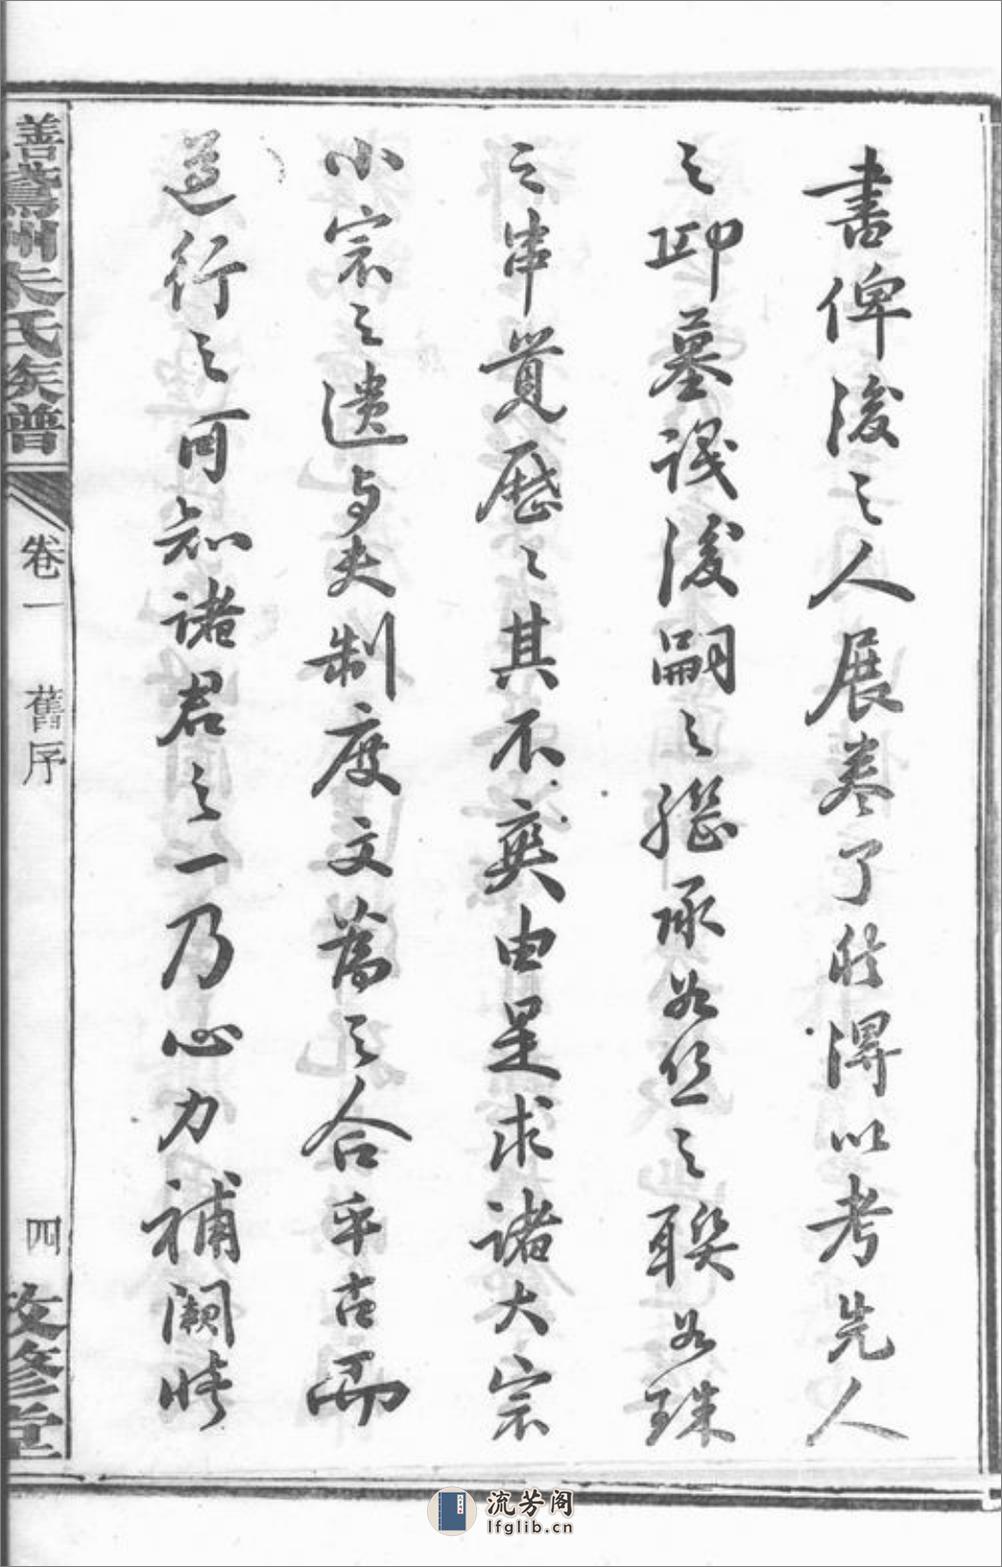 書俾後之人展卷了然得以考先人
之邱墓識後嗣之繼承如丝之聯如珠
之串覽歷々其不爽由是求諸大宗
小宗之遺与夫制度文為之合乎古而
遵行之可知諸君之一乃心力補闕
善州朱氏族譜
卷一 舊序
四
修堂
流芳阁
lfglib.cn